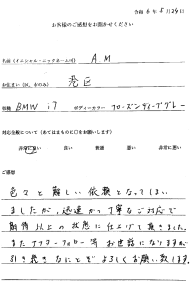 令和 6 年 5 月 24 日
お客様のご感想をお聞かせください
お名前（イニシャル・ニックネーム可） A.M
お住まい（区、市のみ） 港区
車種 BMW i7 ボディーカラー フローズンディープグレー
対応全般について（あてはまるものに○をお願いします）
非常に良い 良い 普通 悪い 非常に悪い
ご感想
色々と難しい依頼となってしまい
ましたが、迅速かつ丁寧なご対応で
期待以上の状態に仕上げて頂きました。
またアフターフォロー等お世話になりますが
引き続きなにとぞよろしくお願い致します。